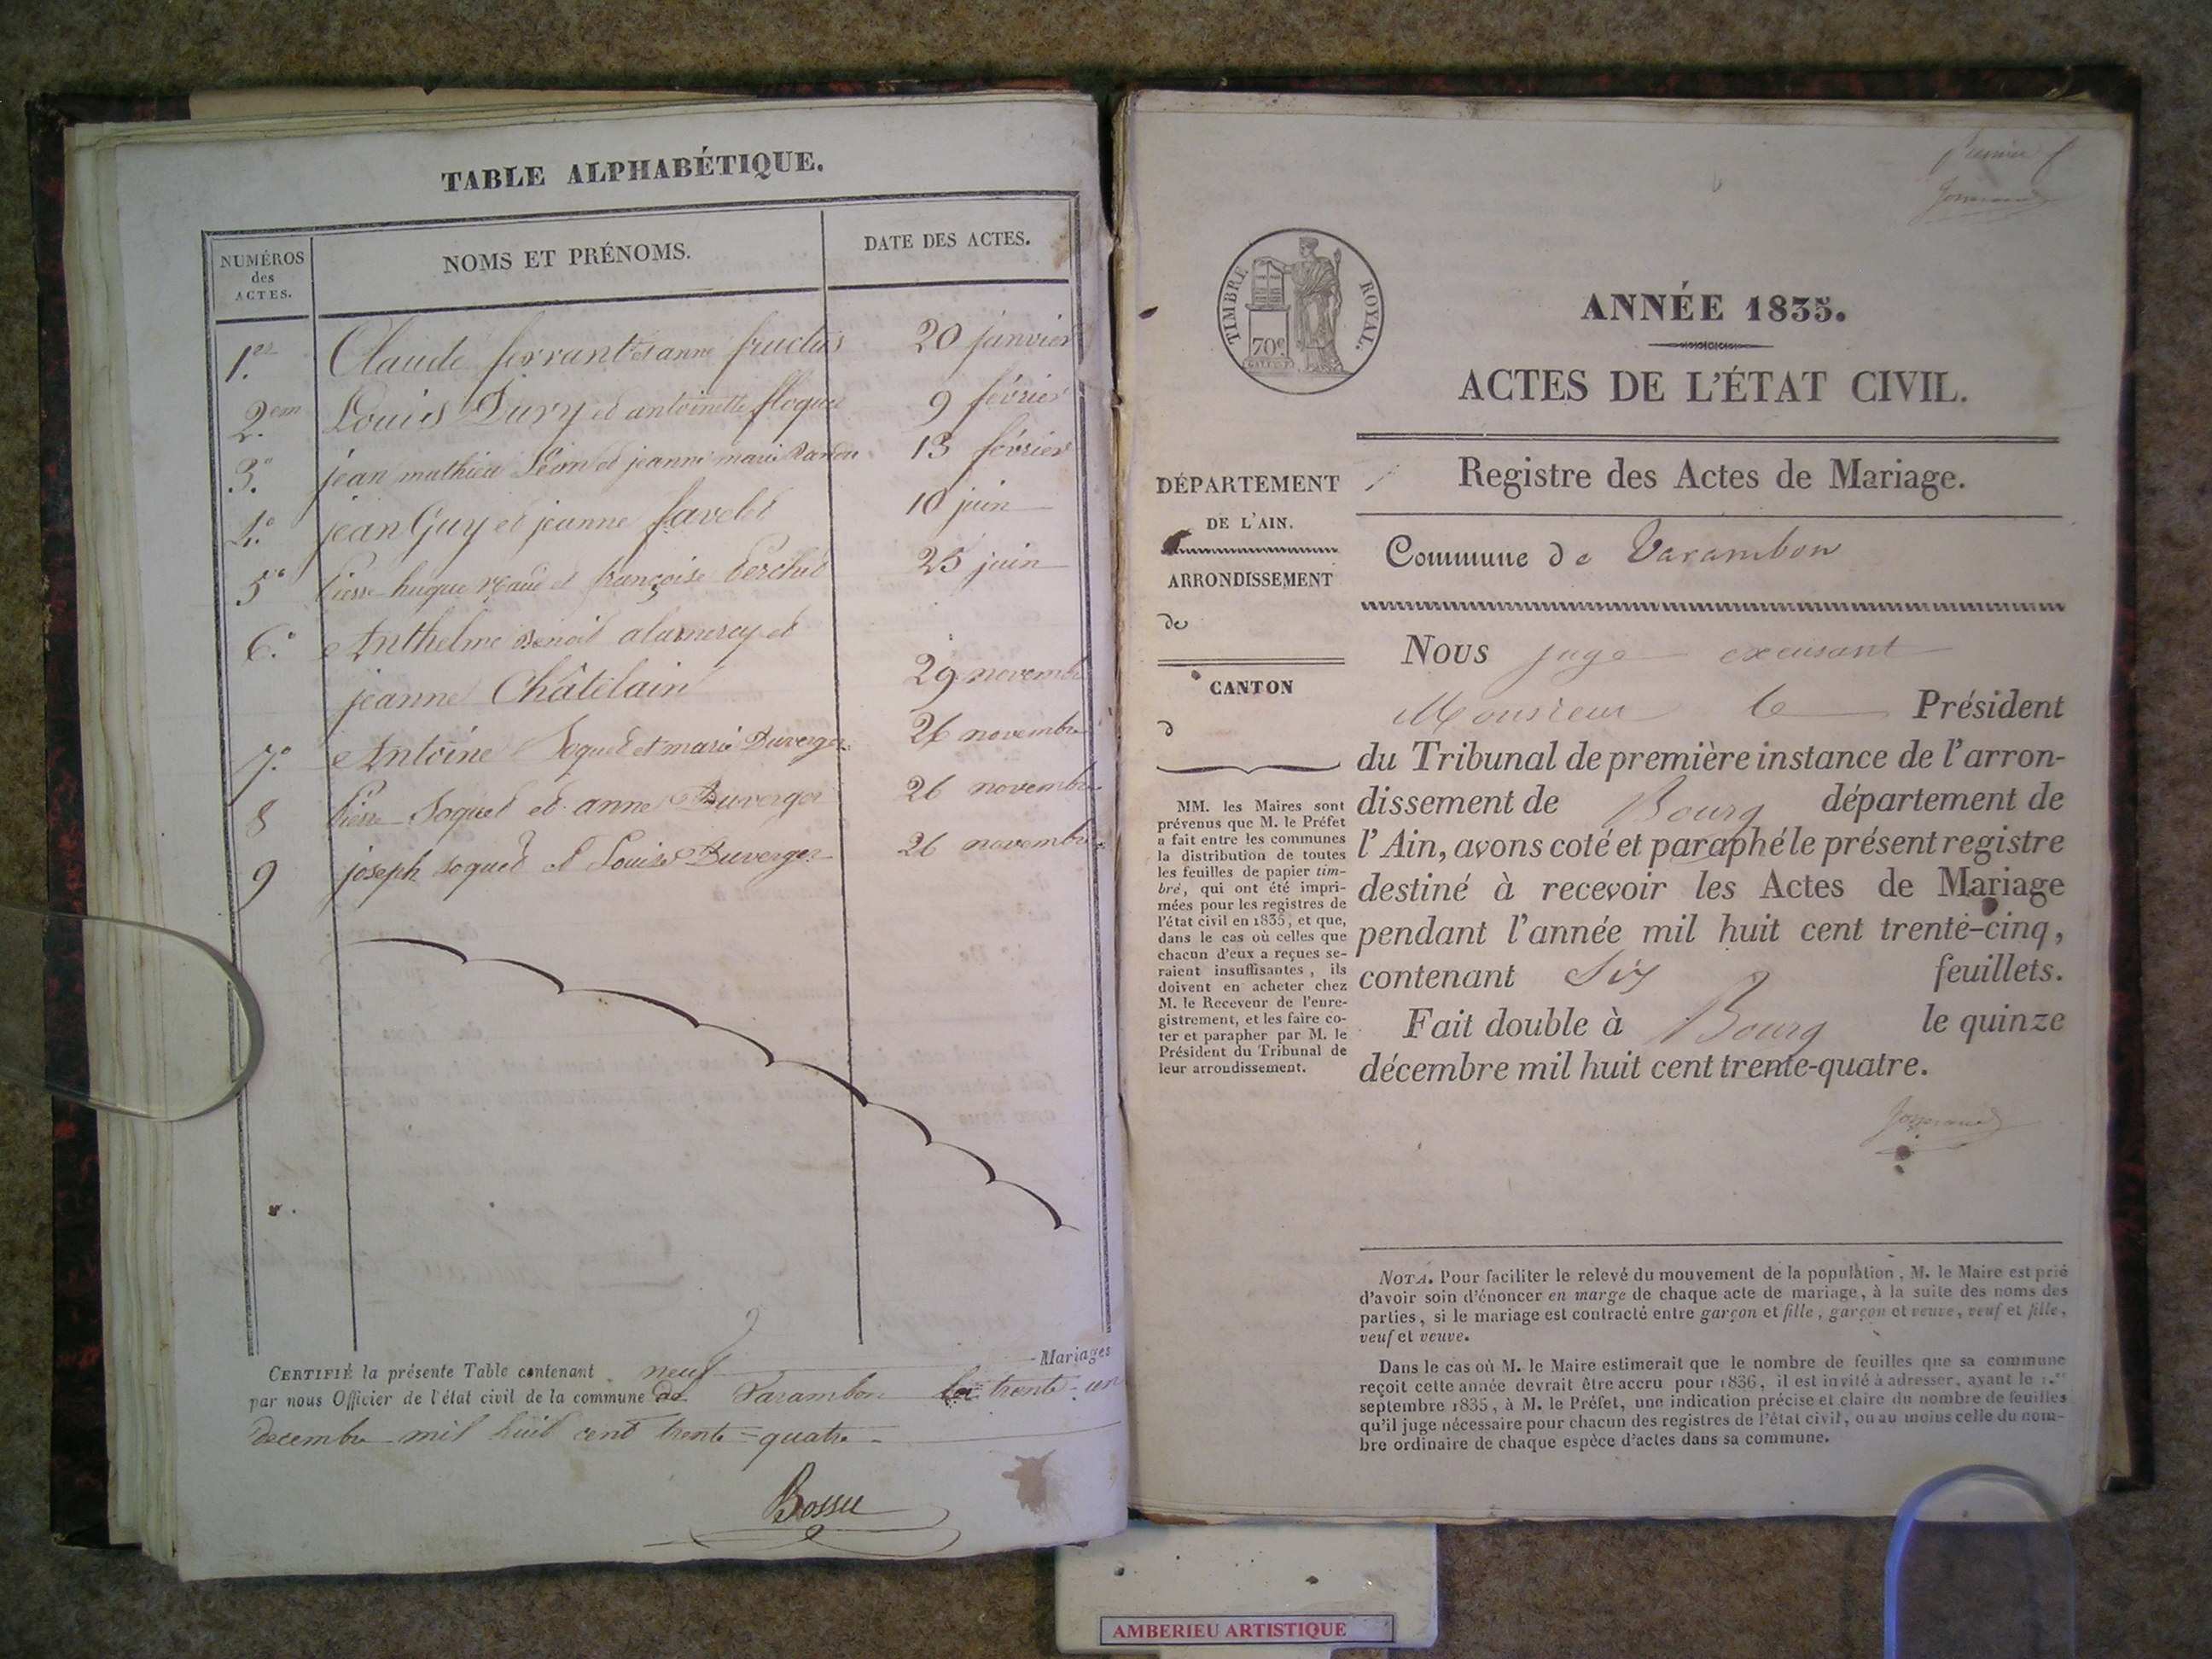 TABLE ALPHABÉTIQUE.
NUMÉROS
des
ACTES.
NOMS ET PRÉNOMS.
DATE DES ACTES.
1.er Claude ferrant et anne fructus 20 janvier
2.em Louis Dury et antoinette 9 février
3.e jean mathieu et jeanne marie 13 février
4.e jean Guy et jeanne favelet 10 juin
5e pierre hugue et françoise 25 juin
6.e Anthelme Benoit et
jeanne Châtelain 29 novembre
7.e Antoine Soquet et marie Duverger 26 novembre
8 Pierre Soquet et anne Duverger 26 novembre
9 joseph soquet et Louise Duverger 26 novembre
CERTIFIÉ la présente Table contenant neuf Mariages
par nous Officier de l'état civil de la commune de Varambon le trente-un
decembre mil huit cent trente-quatre
Bossu
TIMBRE ROYAL.
70c
ANNÉE 1835.
ACTES DE L'ÉTAT CIVIL.
Registre des Actes de Mariage.
DÉPARTEMENT
DE L'AIN.
ARRONDISSEMENT
de
CANTON
d
MM. les Maires sont
prévenus que M. le Préfet
a fait entre les communes
la distribution de toutes
les feuilles de papier tim-
bré, qui ont été impri-
mées pour les registres de
l'état civil en 1835, et que,
dans le cas où celles que
chacun d'eux a reçues se-
raient insuffisantes, ils
doivent en acheter chez
M. le Receveur de l'enre-
gistrement, et les faire co-
ter et parapher par M. le
Président du Tribunal de
leur arrondissement.
Commune de Varambon
Nous juge excusant
Monsieur le Président
du Tribunal de première instance de l'arron-
dissement de Bourg département de
l'Ain, avons coté et paraphé le présent registre
destiné à recevoir les Actes de Mariage
pendant l'année mil huit cent trente-cinq,
contenant Six feuillets.
Fait double à Bourg le quinze
décembre mil huit cent trente-quatre.
NOTA. Pour faciliter le relevé du mouvement de la population, M. le Maire est prié
d'avoir soin d'énoncer en marge de chaque acte de mariage, à la suite des noms des
parties, si le mariage est contracté entre garçon et fille, garçon et veuve, veuf et fille,
veuf et veuve.
Dans le cas où M. le Maire estimerait que le nombre de feuilles que sa commune
reçoit cette année devrait être accru pour 1836, il est invité à adresser, avant le 1.er
septembre 1835, à M. le Préfet, une indication précise et claire du nombre de feuilles
qu'il juge nécessaire pour chacun des registres de l'état civil, ou au moins celle du nom-
bre ordinaire de chaque espèce d'actes dans sa commune.
AMBERIEU ARTISTIQUE